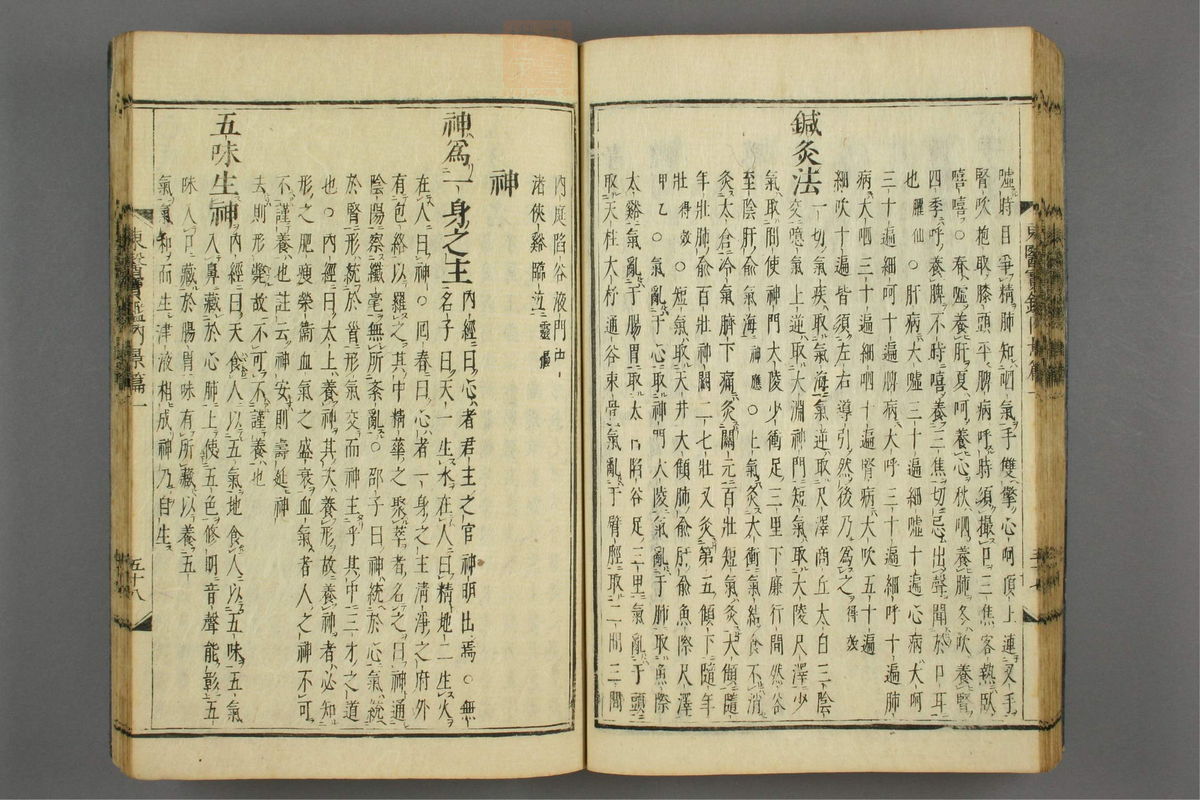 噓時目爭精肺知呬氣手雙擎心呵頂上連叉手
腎吹抱取膝頭平脾病呼時須撮口三焦客熱臥
嘻嘻○春噓養肝夏呵養心秋呬養肺冬吹養腎
四季呼養脾不時嘻養三焦切忌出聲聞於口耳
也臞仙○肝病大噓三十遍細噓十遍心病大呵
三十遍細呵十遍脾病大呼三十遍細呼十遍肺
病大呬三十遍細呬十遍腎病大吹五十遍
細吹十遍皆須左右導引然後乃爲之得效
鍼灸法一切氣疾取氣海氣逆取尺澤商丘太白三陰
交噫氣上逆取大淵神門短氣取大陵尺澤少
氣取間使神門大陵少衝足三里下廉行間然谷
至陰肝兪氣海神應○上氣灸太衝氣結食不消
灸太倉冷氣臍下痛灸關元百壯短氣灸大傾隨
年壯肺兪百壯神闕二七壯又灸第五傾下隨年
壯得效○短氣取天井大傾肺兪肝兪魚際尺澤
甲乙○氣亂于心取神門大陵氣亂于肺取魚際
太谿氣亂于腸胃取太 陷谷足三里氣亂于頭
取天柱大杼通谷束骨氣亂于臂脛取二間三間
內庭陷谷液門中
渚俠谿臨泣靈樞
神
神爲一身之主內經曰心者君主之官神明出焉○無
名子曰天一生水在人曰精地二生火
在人曰神○回春曰心者一身之主清淨之府外
有包絡以羅之其中精華之聚萃者名之曰神通
陰陽察纖毫無所紊亂○邵子曰神統於心氣統
於腎形統於首形氣交而神主乎其中三才之道
也○內經曰太上養神其次養形故養神者必知
形之肥瘦榮衞血氣之盛衰血氣者人之神不可
不謹養也註云神安則壽延神
去則形斃故不可不謹養也
五味生神內經曰天食人以五氣地食人以五味五氣
入鼻藏於心肺上使五色修明音聲能彰五
味入口藏於腸胃味有所藏以養五
氣氣和而生津液相成神乃自生
東醫寶鑑內景篇一
五十八